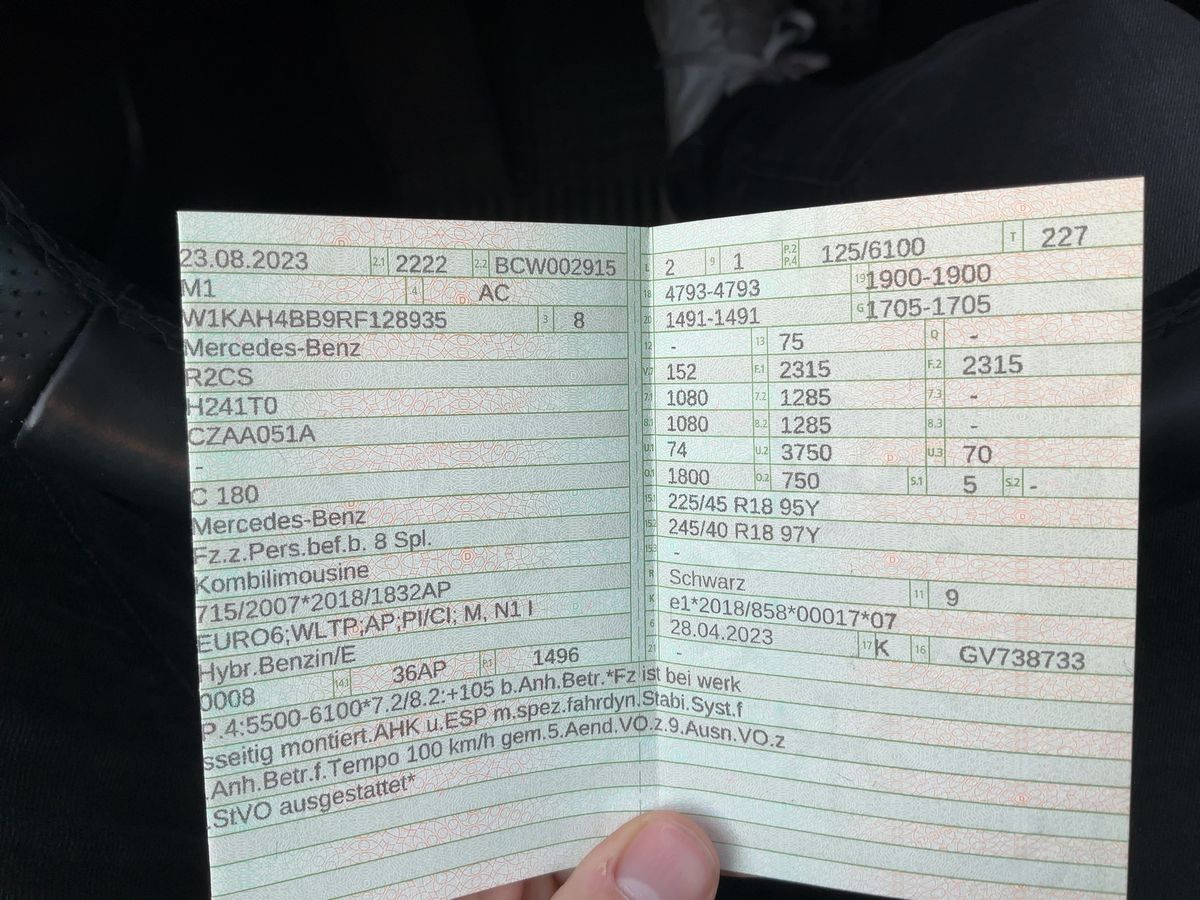 23.08.2023 2.1 2222 2.2 BCW002915
M1 4 AC
W1KAH4BB9RF128935 3 8
Mercedes-Benz
R2CS
H241T0
CZAA051A
-
C 180
Mercedes-Benz
Fz.z.Pers.bef.b. 8 Spl.
Kombilimousine
715/2007*2018/1832AP
EURO6;WLTP;AP;PI/CI; M, N1 I
Hybr.Benzin/E
0008 14.1 36AP P.1 1496
L 2 9 1 P.2 P.4 125/6100 T 227
18 4793-4793 19 1900-1900
20 1491-1491 G 1705-1705
12 - 13 75 Q -
V.7 152 F.1 2315 F.2 2315
7.1 1080 7.2 1285 7.3 -
8.1 1080 8.2 1285 8.3 -
U.1 74 U.2 3750 U.3 70
O.1 1800 O.2 750 S.1 5 S.2 -
15.1 225/45 R18 95Y
15.2 245/40 R18 97Y
15.3 -
R Schwarz 11 9
K e1*2018/858*00017*07
6 28.04.2023 17 K 16 GV738733
21 -
P.4:5500-6100*7.2/8.2:+105 b.Anh.Betr.*Fz ist bei werk
sseitig montiert.AHK u.ESP m.spez.fahrdyn.Stabi.Syst.f
.Anh.Betr.f.Tempo 100 km/h gem.5.Aend.VO.z.9.Ausn.VO.z
.StVO ausgestattet*